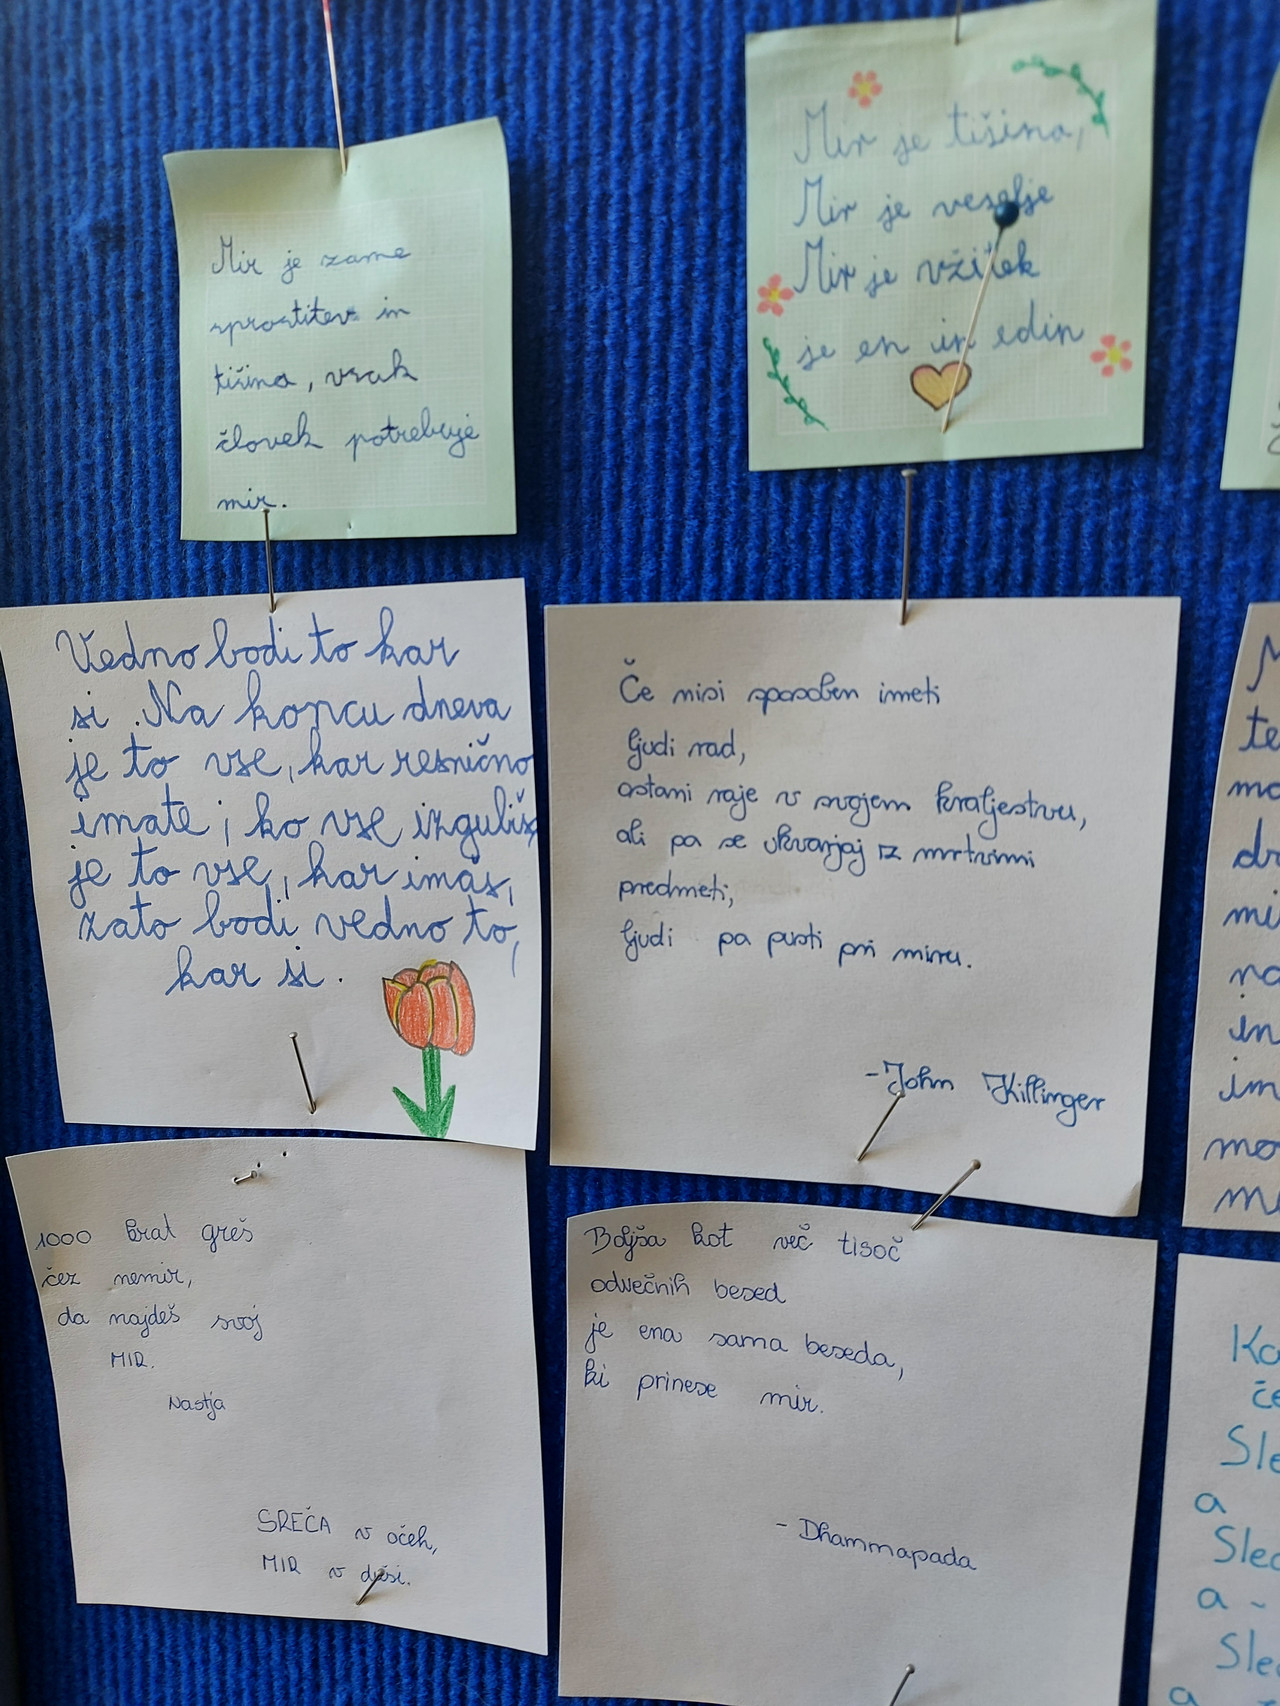 Mir je zame
sprostitev in
tišina, vsak
človek potrebuje
mir.
Mir je tišina,
Mir je veselje
Mir je vžitek
je en in edin
Vedno bodi to kar
si. Na koncu dneva
je to vse, kar resnično
imate; ko vse izgubiš,
je to vse, kar imaš,
zato bodi vedno to,
kar si.
Če nisi sposoben imeti
ljudi rad,
ostani raje v svojem kraljestvu,
ali pa se ukvarjaj iz mrtvimi
predmeti;
ljudi pa pusti pri miru.
-John Killinger
1000 krat greš
čez nemir,
da najdeš svoj
MIR.
Nastja
SREČA v očeh,
MIR v duši.
Boljša kot več tisoč
odvečnih besed
je ena sama beseda,
ki prinese mir.
- Dhammapada
M
te
mo
dr
mi
ra
in
im
mo
mi
Ko
če
Sle
a
Sled
a -
Sled
a